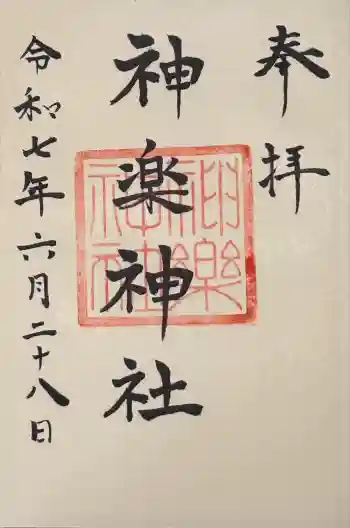 奉拝
神楽神社
神楽神社
令和七年六月二十八日